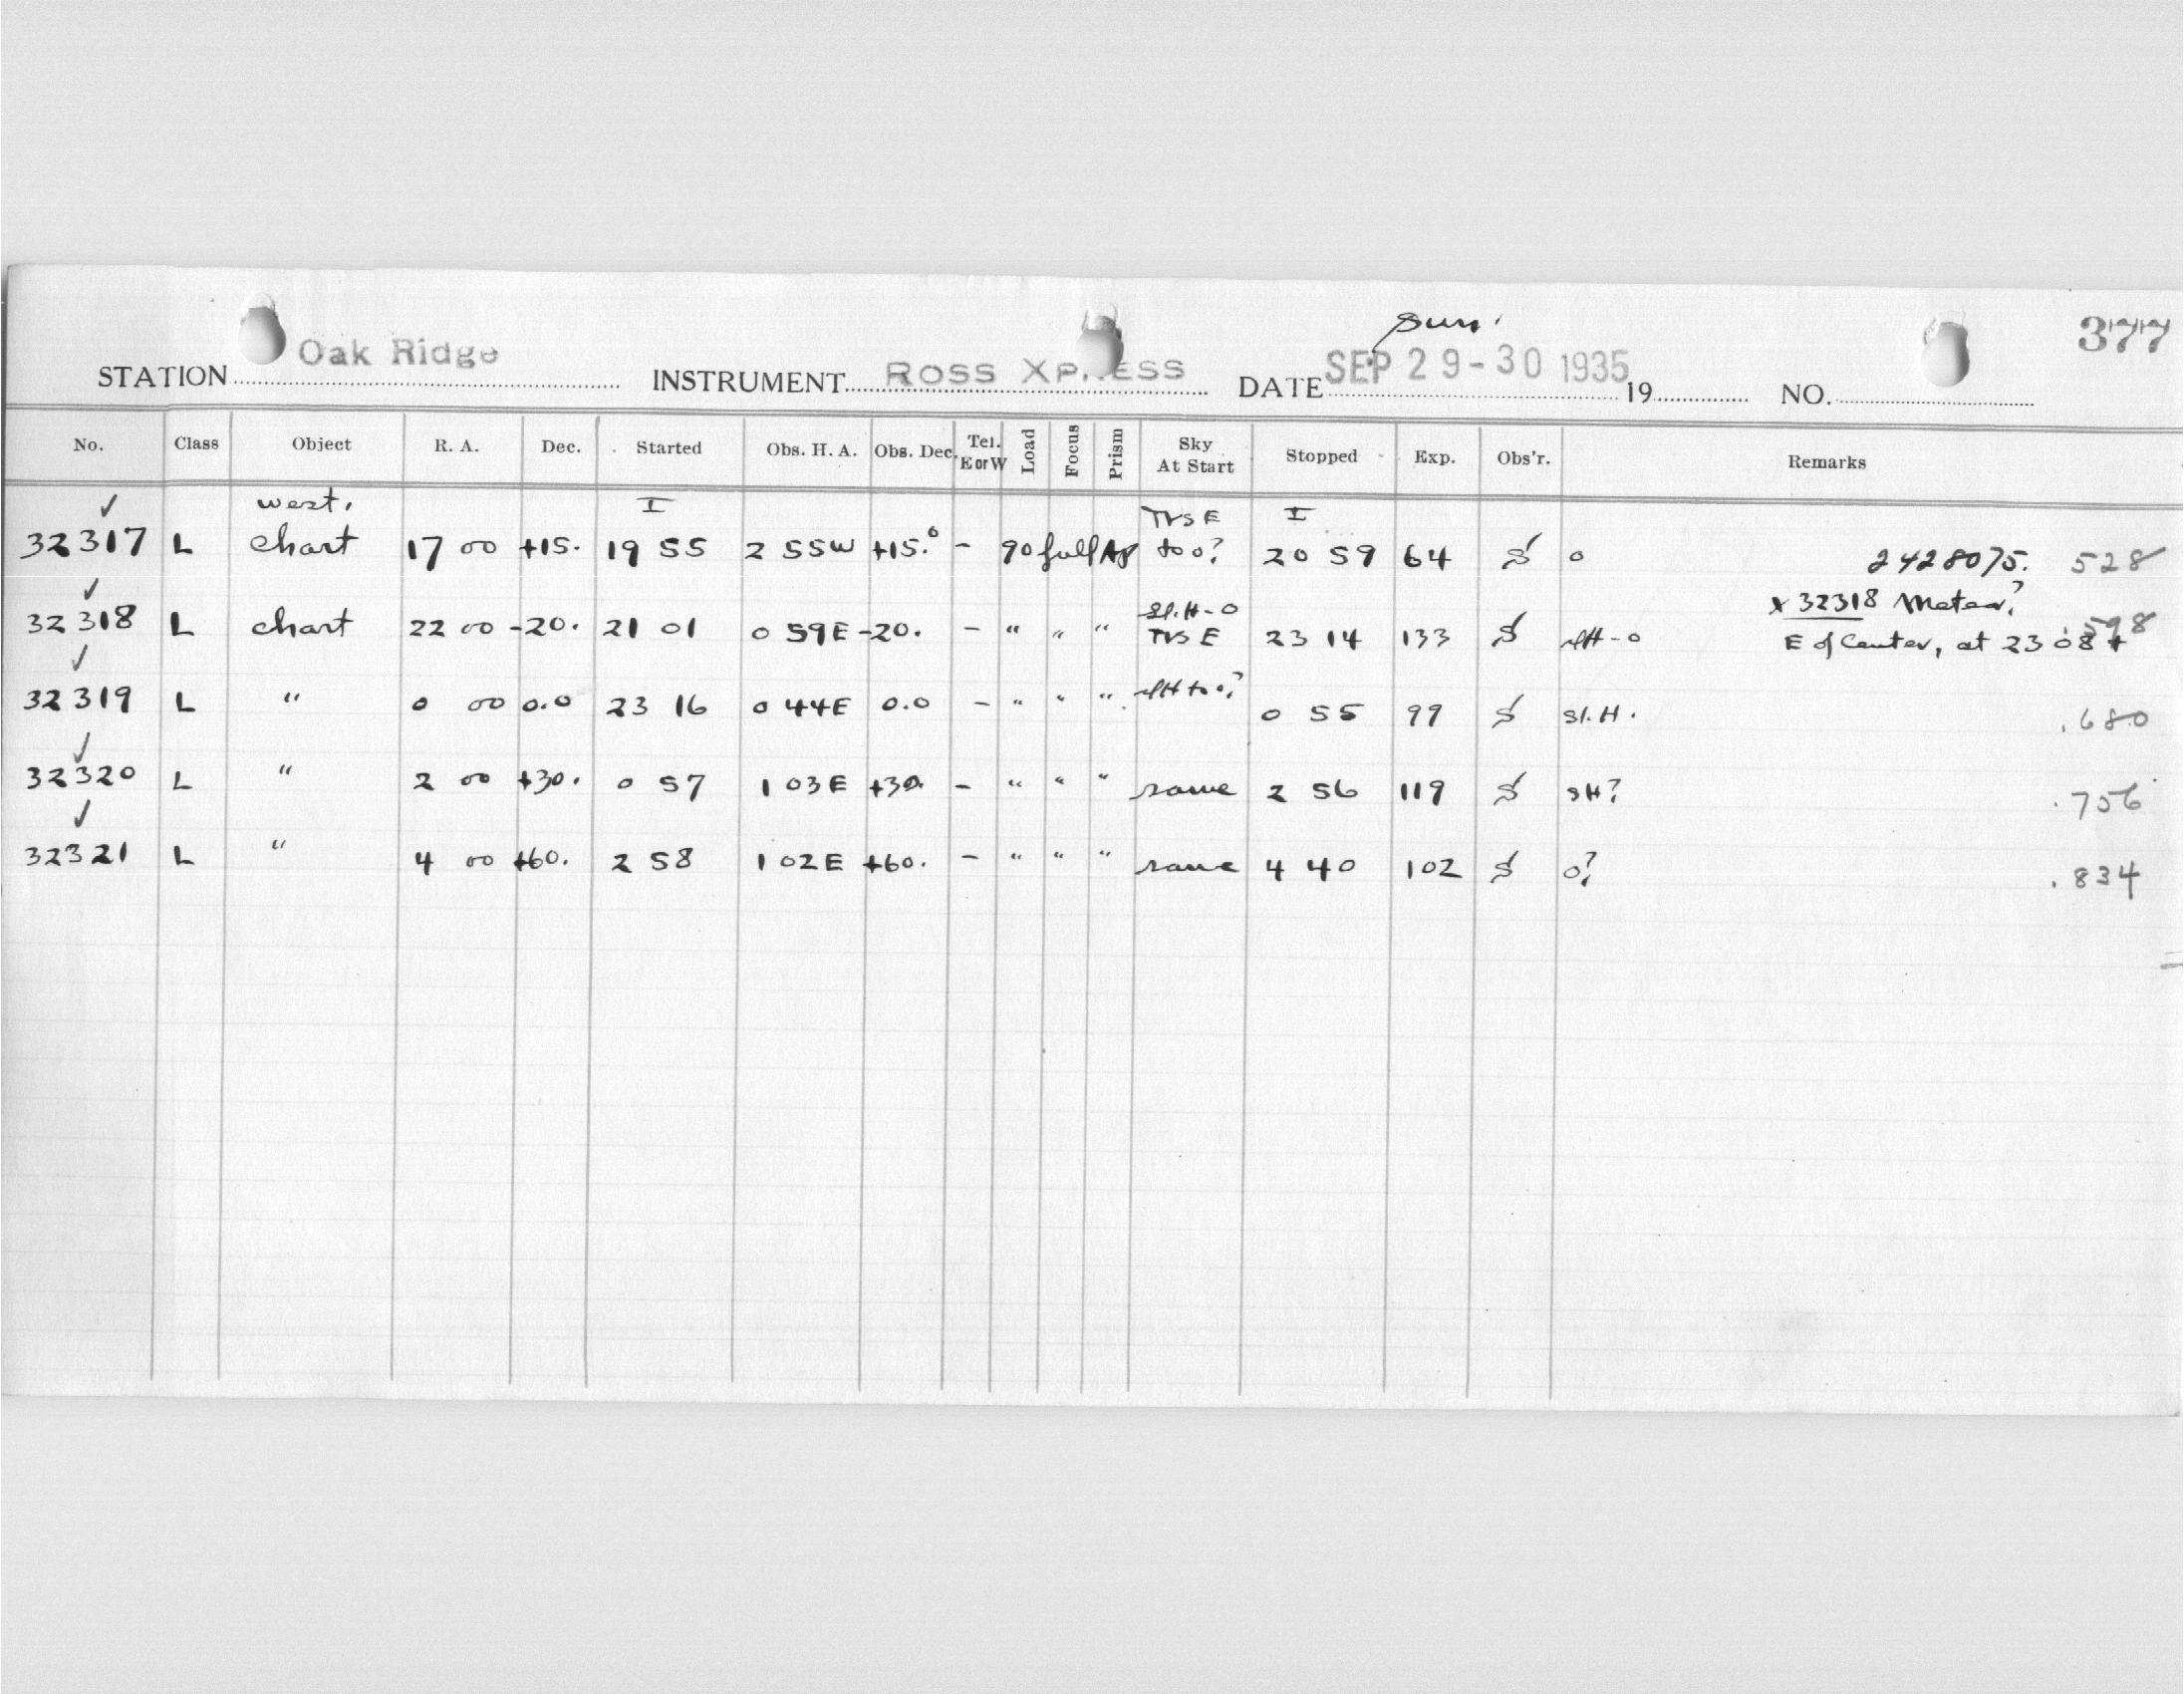 Sun.
377
STATION Oak Ridge INSTRUMENT ROSS XPRESS DATE SEP 29-30 1935 19 NO.
No. Class Object R. A. Dec. Started Obs. H. A. Obs. Dec. Tel. E or W Load Focus Prism Sky At Start Stopped Exp. Obs'r. Remarks
✓ west. I TVS E I
32317 L chart 17 00 +15. 19 55 2 55W +15.° - 90 full Ap to 0? 20 59 64 S 0 2428075. 528
✓ Sl. H - 0 x 32318 Meteor?
32318 L chart 22 00 -20. 21 01 0 59E -20. - " " " TVS E 23 14 133 S slH-0 E of Center, at 23 08 + .598
✓
32319 L " 0 00 0.0 23 16 0 44E 0.0 - " " " slH to 0? 0 55 99 S sl. H. .680
✓
32320 L " 2 00 +30. 0 57 1 03E +30. - " " " same 2 56 119 S sH? .756
✓
32321 L " 4 00 +60. 2 58 1 02E +60. - " " " same 4 40 102 S 0? .834